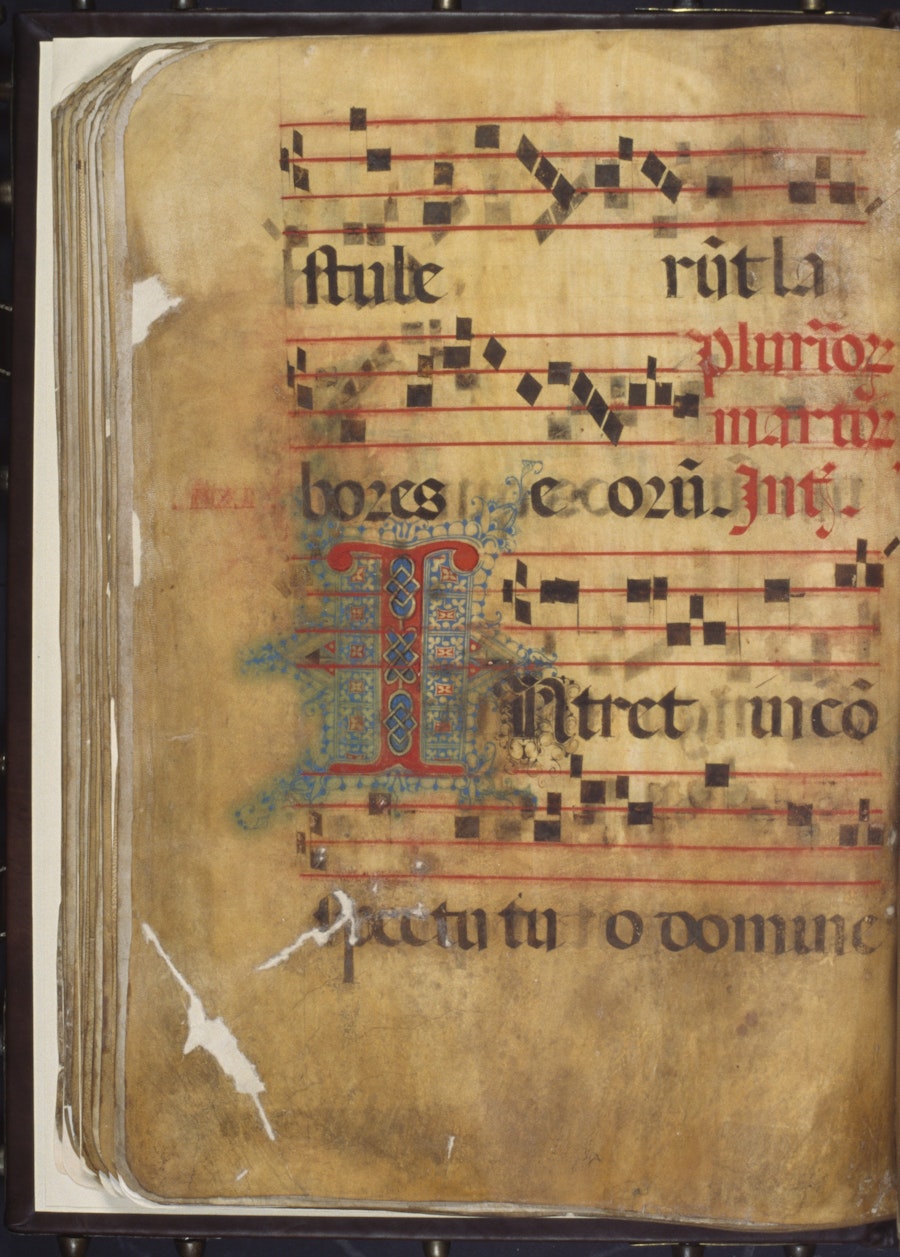 ſtule rũt la
plurĩoꝝ
martiꝝ
boꝛes e oꝛũ. Int̃.
INtret in cõ
ſpectu tu o domine